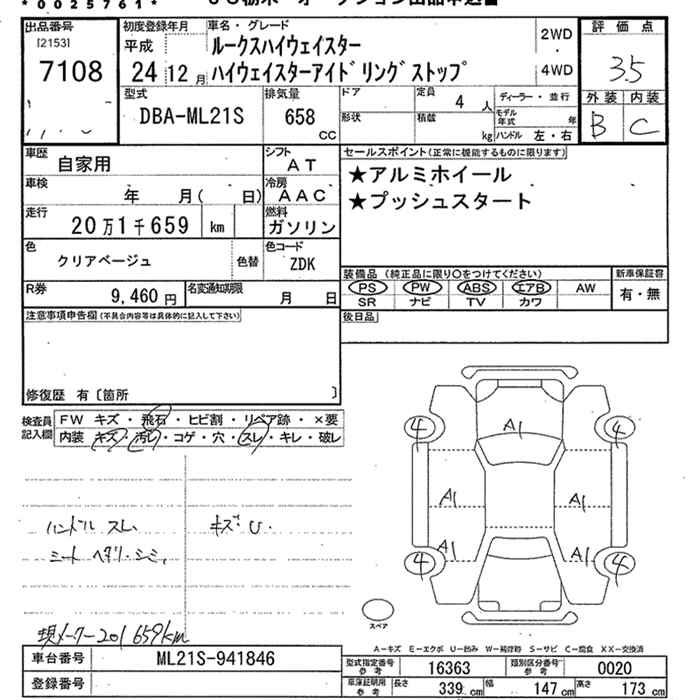 *0025761*
出品番号
[2153]
7108
初度登録年月
平成
24 12 月
車名・グレード
ルークスハイウェイスター
ハイウェイスターアイドリングストップ
2WD
4WD
評価点
3.5
外装 内装
B C
型式
DBA-ML21S
排気量
658
cc
ドア
定員
4 人
形状
積載
kg
ディーラー・並行
モデル年式 年
ハンドル 左・右
車歴
自家用
シフト
AT
車検
年 月( 日)
冷房
AAC
走行
20万1千659 km
燃料
ガソリン
色
クリアベージュ
色替
色コード
ZDK
R券
9,460 円
名変通知期限
月 日
セールスポイント(正常に機能するものに限ります)
★アルミホイール
★プッシュスタート
装備品(純正品に限り○をつけてください)
新車保証書
PS PW ABS エアB AW
SR ナビ TV カワ
有・無
後日品
注意事項申告欄(不具合内容等は具体的に記入して下さい)
修復歴 有〔箇所 〕
検査員記入欄
FW キズ・飛石・ヒビ割・リペア跡・×要
内装 キズ・汚レ・コゲ・穴・スレ・キレ・破レ
ハンドル スレ、
シート ヘタリ・シミ、
キズ・U・
現メーター201659km
A1
4 4
A1 A1
A1 A1
4 4
スペア
A-キズ E-エクボ U-凹み W-補修跡 S-サビ C-腐食 XX-交換済
車台番号
ML21S-941846
登録番号
型式指定番号
参考
16363
類別区分番号
参考
0020
車庫証明用
参考
長さ
339 cm
幅
147 cm
高さ
173 cm